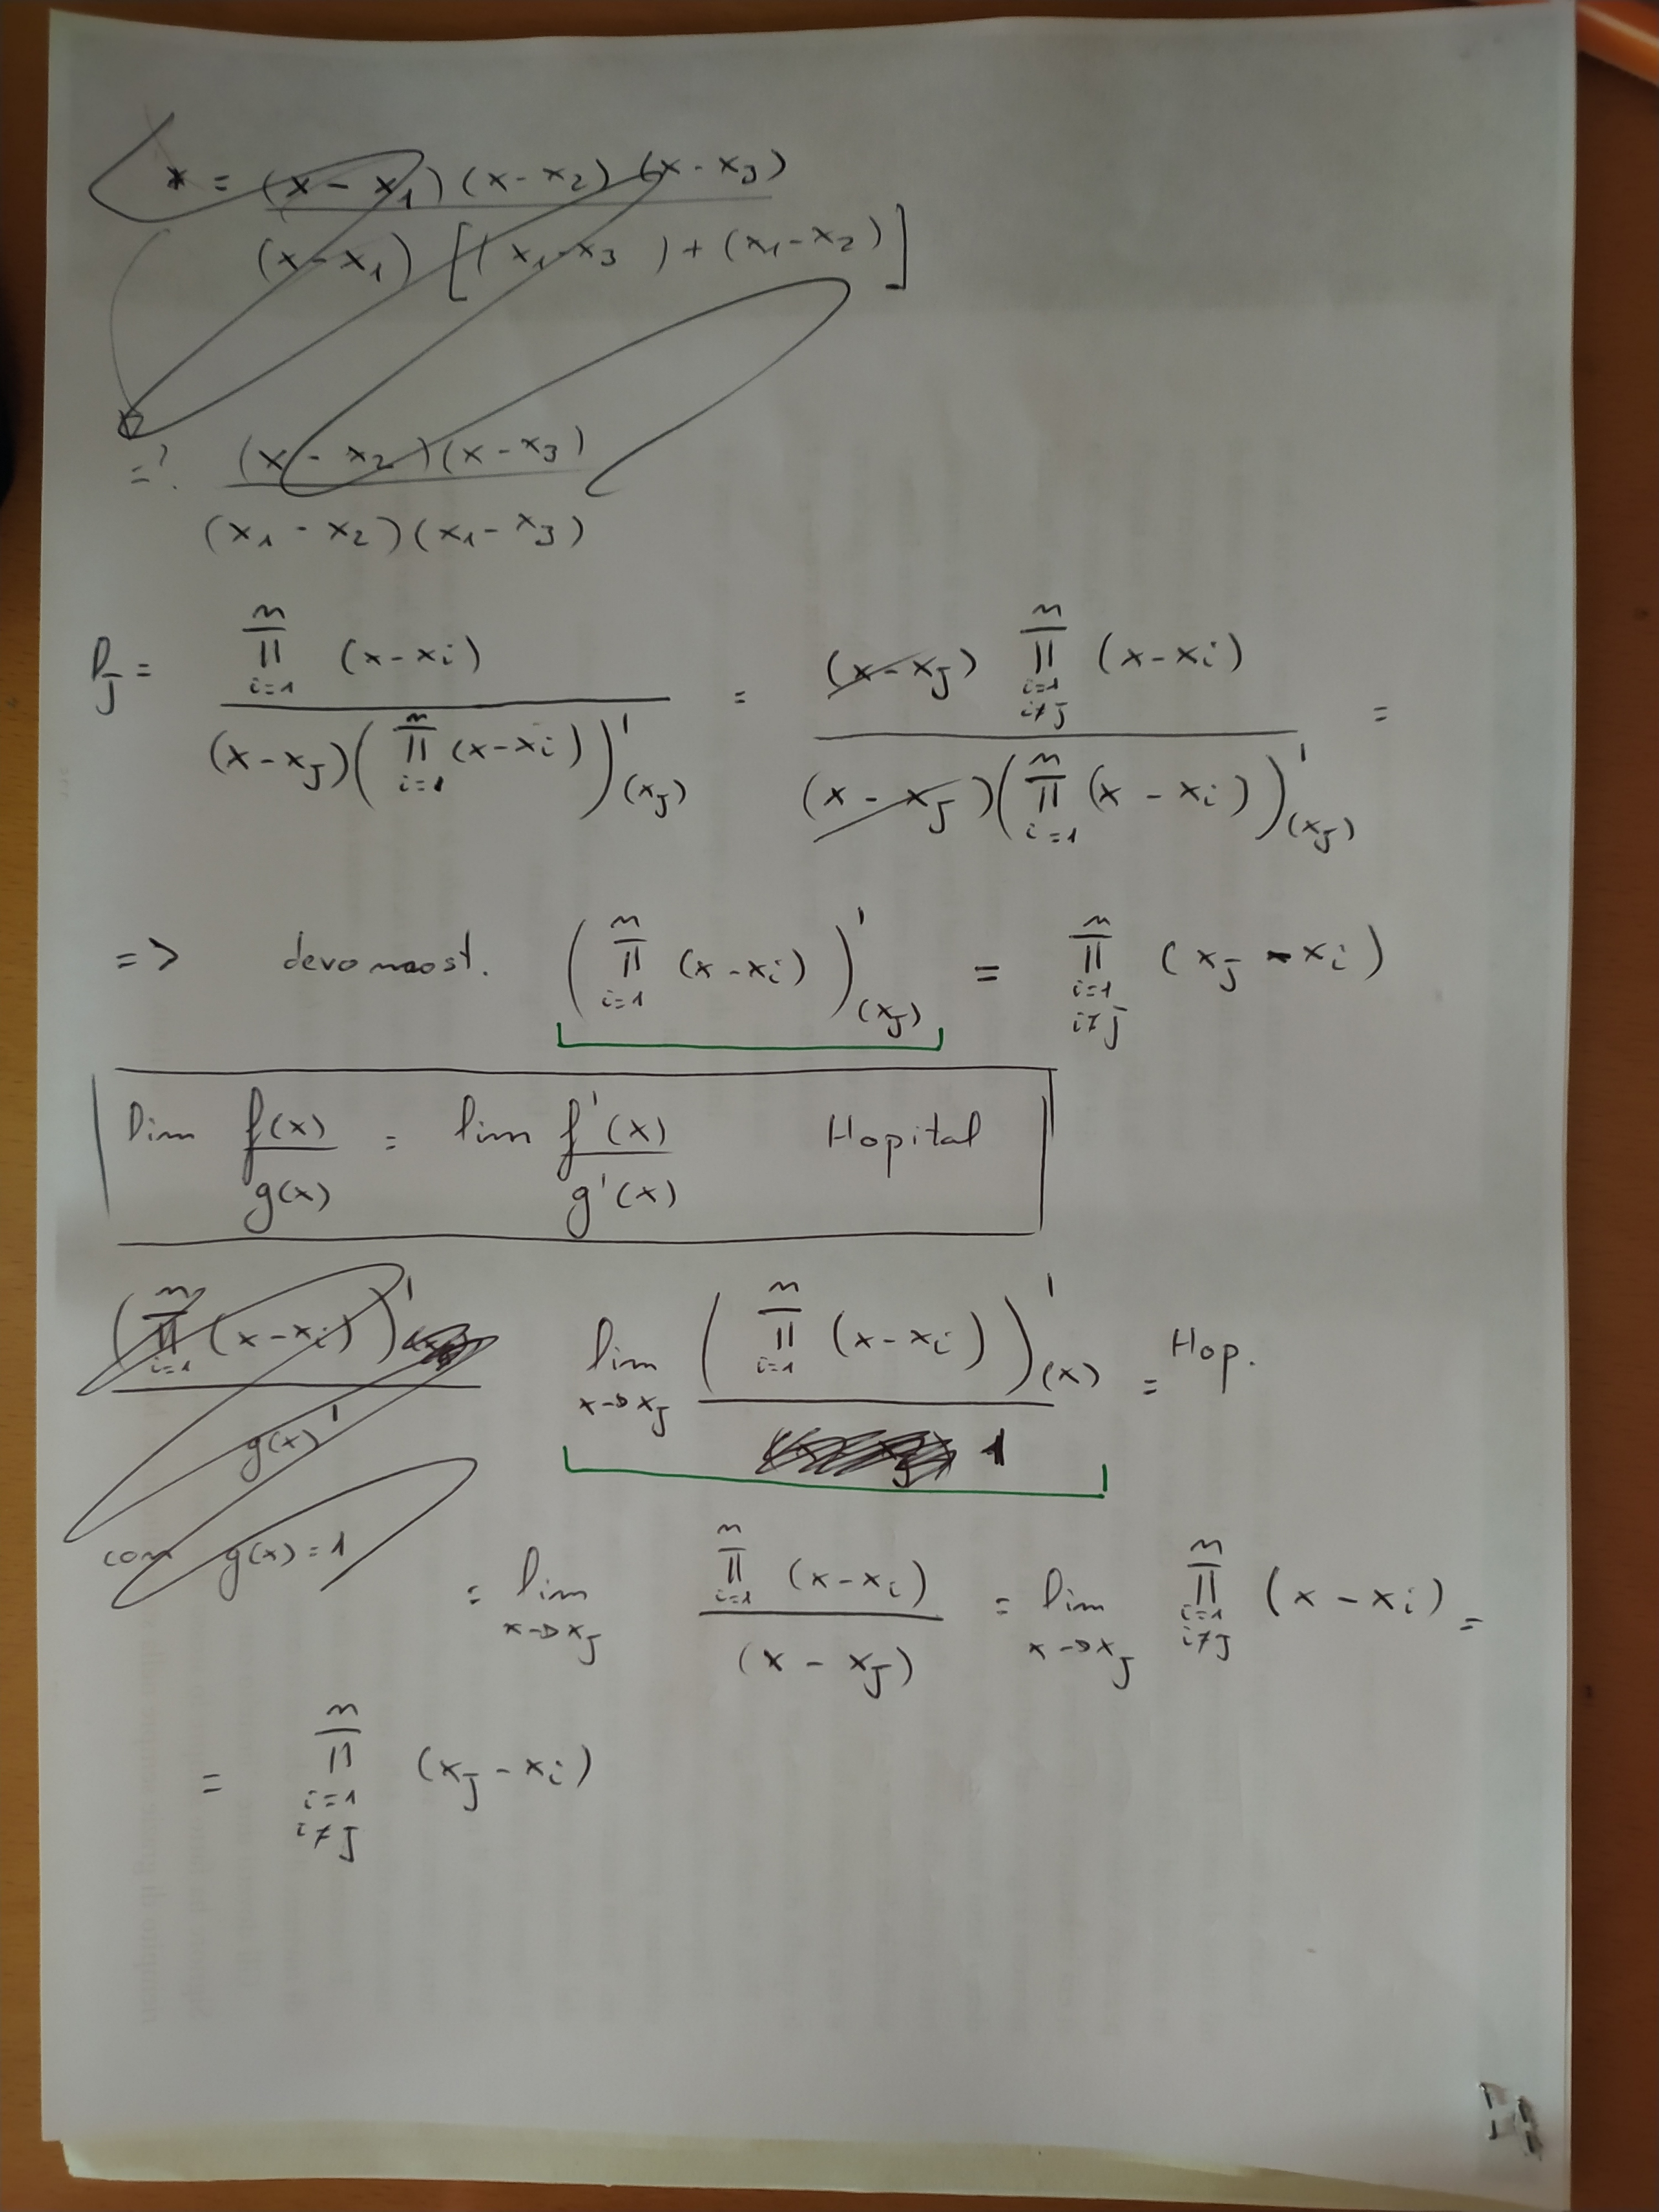 * = (x - x₁)(x - x₂)(x - x₃) / (x - x₁)[(x₁ - x₃) + (x₁ - x₂)]
=? (x - x₂)(x - x₃) / (x₁ - x₂)(x₁ - x₃)
lⱼ = ∏_{i=1}^{n} (x - xᵢ) / (x - xⱼ)(∏_{i=1}^{n} (x - xᵢ))'(xⱼ) = (x - xⱼ) ∏_{i=1, i≠j}^{n} (x - xᵢ) / (x - xⱼ)(∏_{i=1}^{n} (x - xᵢ))'(xⱼ) =
=> devo most. (∏_{i=1}^{n} (x - xᵢ))'(xⱼ) = ∏_{i=1, i≠j}^{n} (xⱼ - xᵢ)
lim f(x)/g(x) = lim f'(x)/g'(x) Hopital
(∏_{i=1}^{n} (x - xᵢ))' / g(x)'
con g(x) = 1
lim_{x→xⱼ} (∏_{i=1}^{n} (x - xᵢ))'(x) / 1 = Hop.
= lim_{x→xⱼ} ∏_{i=1}^{n} (x - xᵢ) / (x - xⱼ) = lim_{x→xⱼ} ∏_{i=1, i≠j}^{n} (x - xᵢ) =
= ∏_{i=1, i≠j}^{n} (xⱼ - xᵢ)